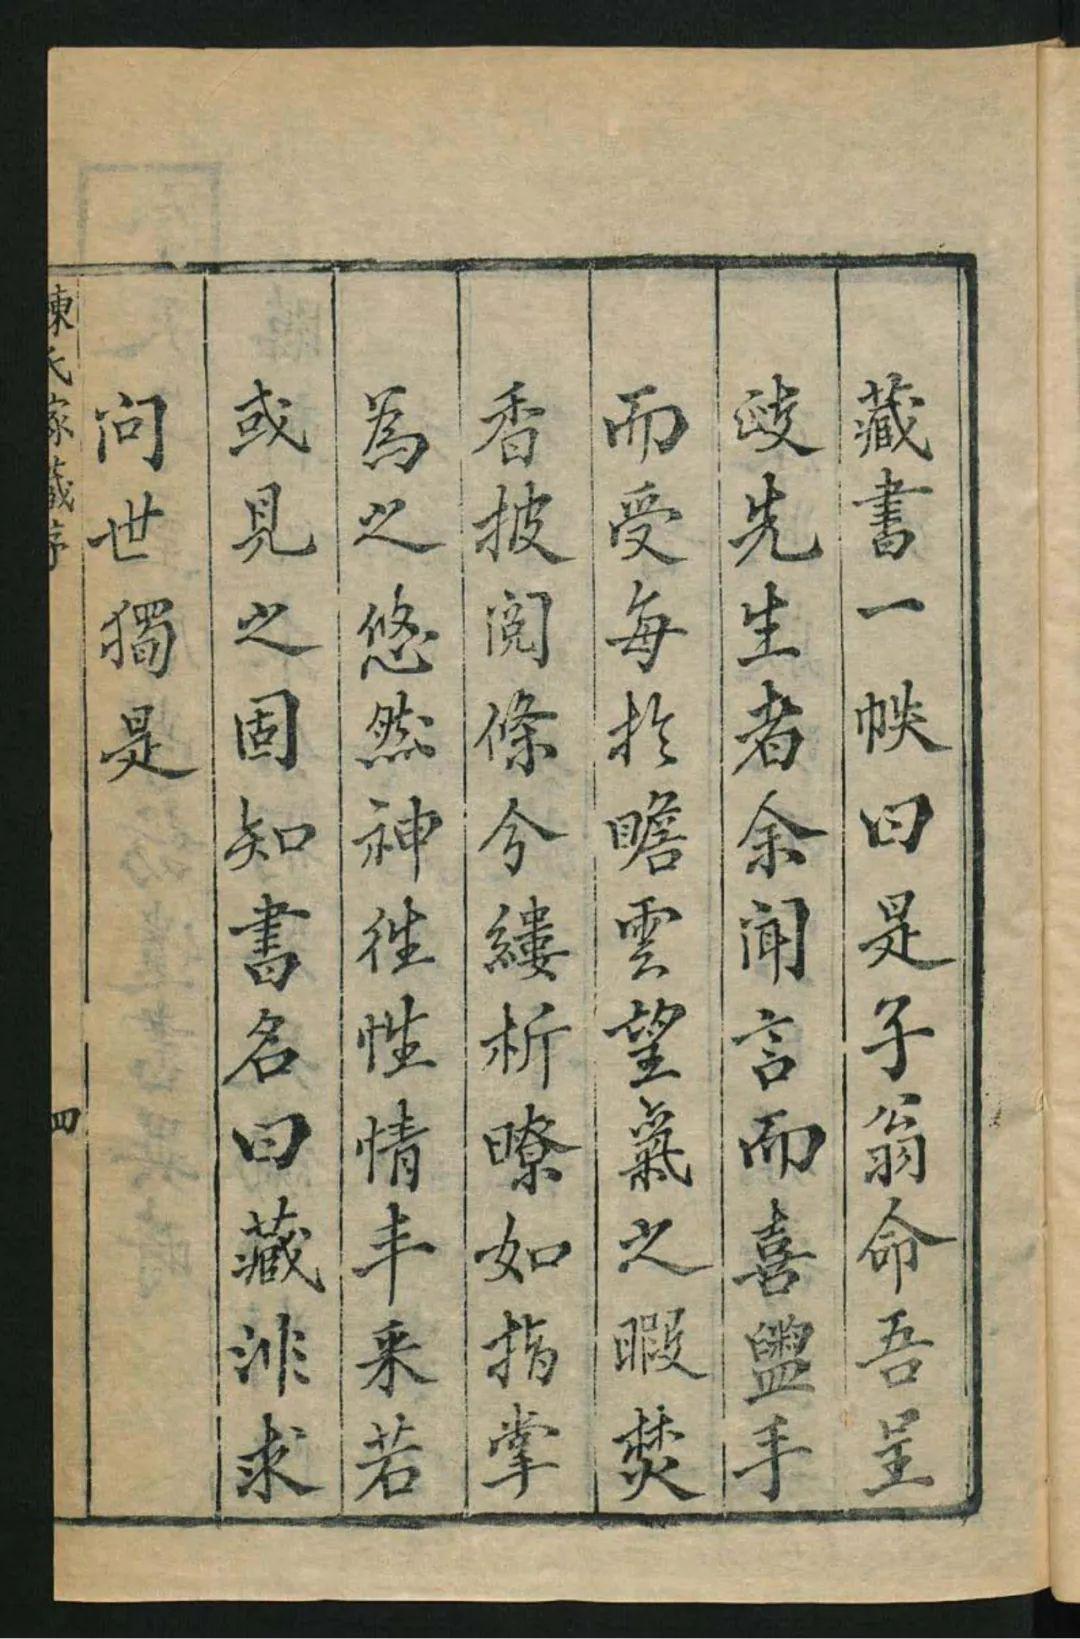 藏書一帙曰是子翁命吾呈
歧先生者余闻言而喜盥手
而受每扵瞻雲望氣之暇焚
香披阅條分縷析瞭如指掌
為之悠然神徃性情丰采若
或見之固知書名曰藏非求
问世獨是
陳氏家藏序
四